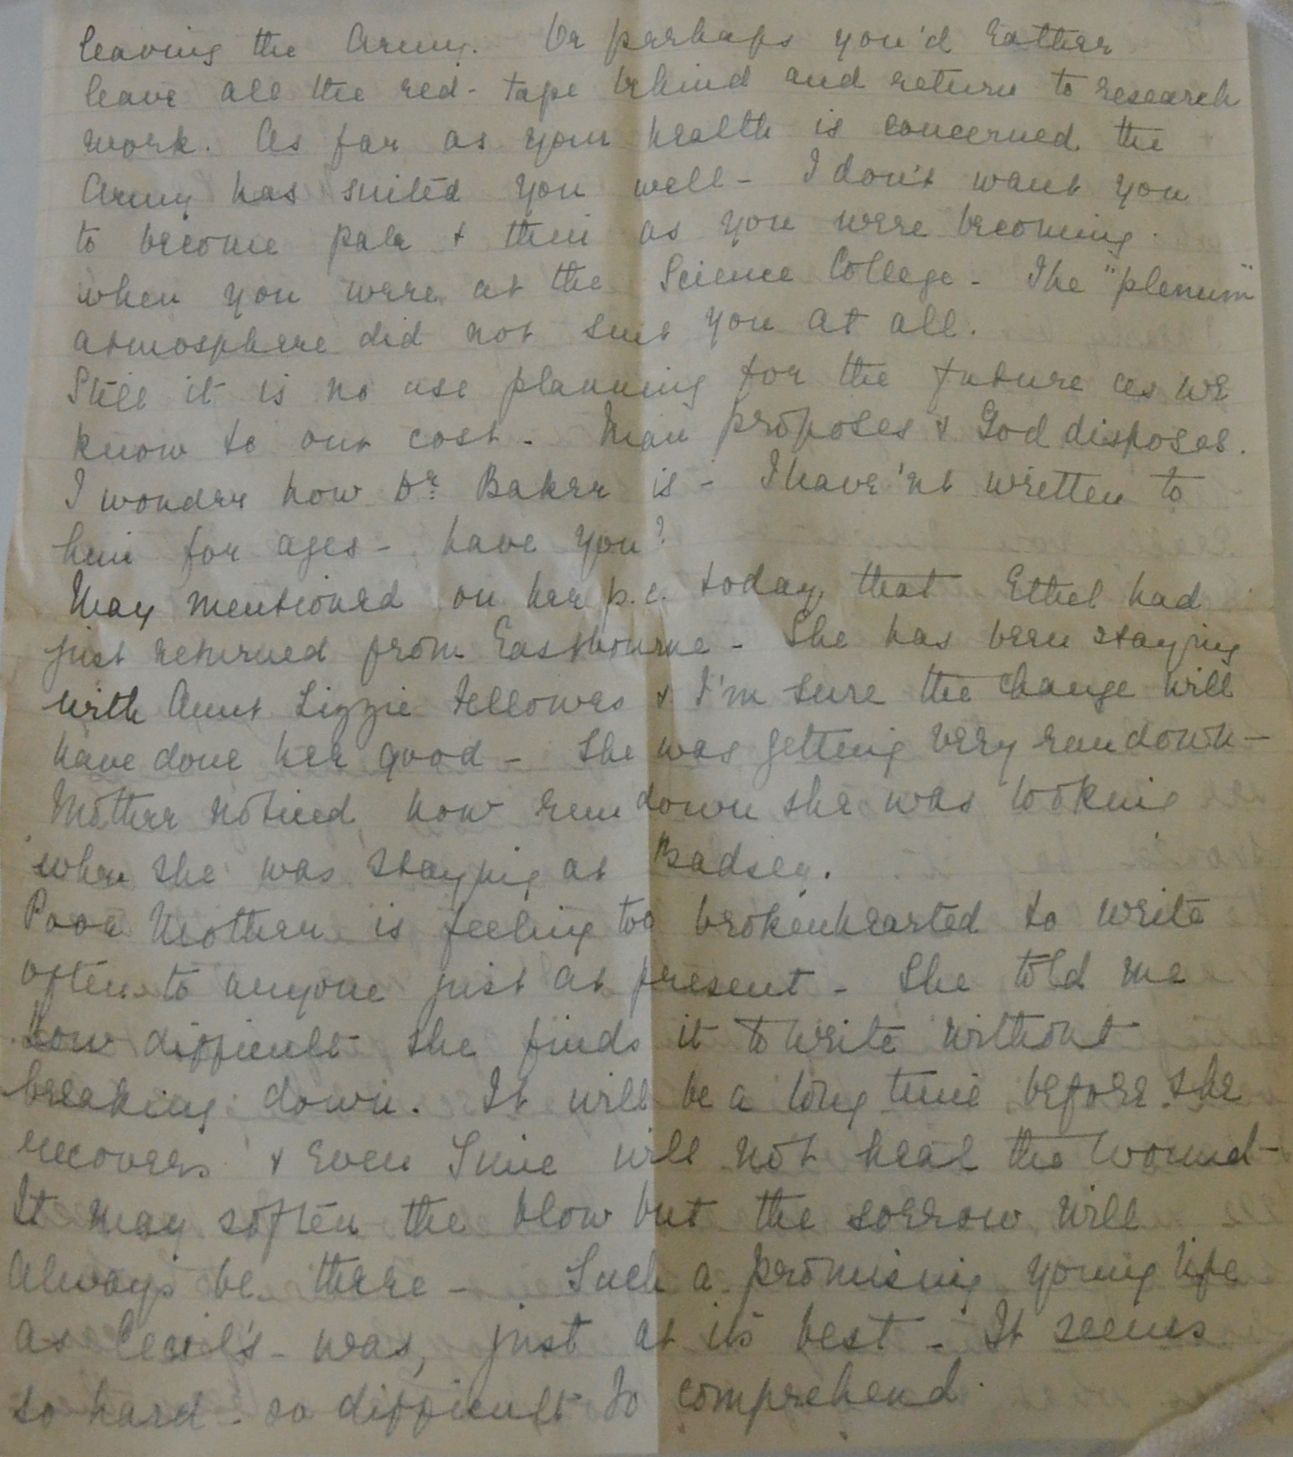 leaving the Army. Or perhaps you'd rather
leave all the red-tape behind and return to research
work. As far as your health is concerned the
Army has suited you well - I don't want you
to become pale & thin as you were becoming
when you were at the Science College - The "plenum"
atmosphere did not suit you at all.
Still it is no use planning for the future as we
know to our cost - Man proposes & God disposes.
I wonder how Dr. Baker is - I have'nt written to
him for ages - have you?
May mentioned on her p.c. today that Ethel had
just returned from Eastbourne - She has been staying
with Aunt Lizzie Fellowes & I'm sure the change will
have done her good - She was getting very rundown -
Mother noticed how run down she was looking
when she was staying at Badsey.
Poor Mother is feeling too brokenhearted to write
often to anyone just at present - She told me
how difficult she finds it to write without
breaking down. It will be a long time before she
recovers & even Time will not heal the wound -
It may soften the blow but the sorrow will
always be there - Such a promising young life
as Cecil's was, just at its best - It seems
so hard - so difficult to comprehend.